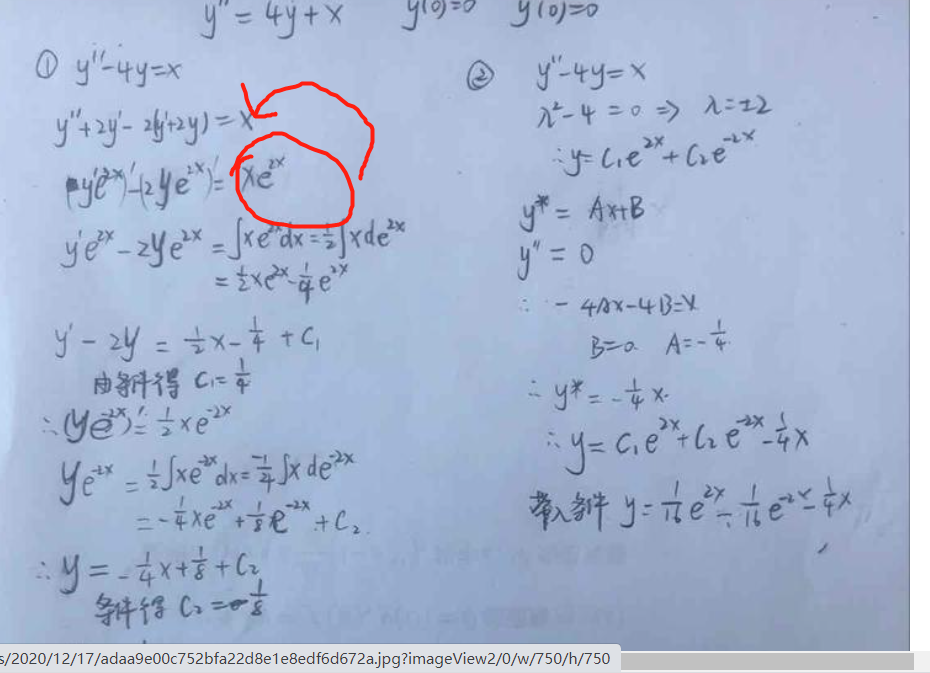 y″ = 4y + x   y(0)=0   y′(0)=0
① y″-4y=x
y″+2y′-2(y′+2y)=x
(y′e^{2x})′-(2ye^{2x})′=xe^{2x}
y′e^{2x}-2ye^{2x}=∫xe^{2x}dx=½∫xde^{2x}
=½xe^{2x}-¼e^{2x}
y′-2y=½x-¼+C₁
由条件得 C₁=¼
∴(ye^{-2x})′=½xe^{-2x}
ye^{-2x}=½∫xe^{-2x}dx=-¼∫xde^{-2x}
=-¼xe^{-2x}+⅛e^{-2x}+C₂.
∴y=-¼x+⅛+C₂
条件得 C₂=-⅛
② y″-4y=x
λ²-4=0⇒λ=±2
∴y=C₁e^{2x}+C₂e^{-2x}
y*=Ax+B
y″=0
∴-4Ax-4B=x
B=0. A=-¼
∴y*=-¼x.
∴y=C₁e^{2x}+C₂e^{-2x}-¼x
带入条件 y=1/16e^{2x}-1/16e^{-2x}-¼x
s/2020/12/17/adaa9e00c752bfa22d8e1e8edf6d672a.jpg?imageView2/0/w/750/h/750